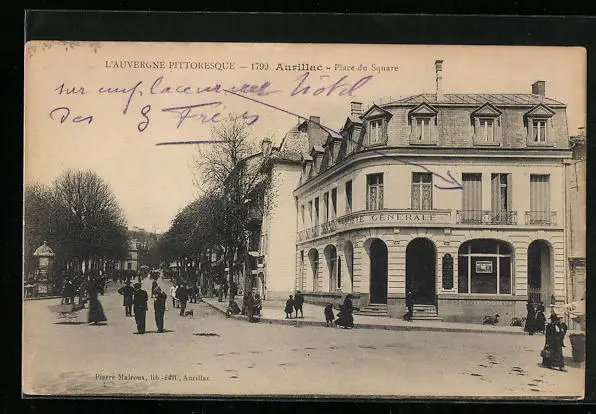 L'AUVERGNE PITTORESQUE — 1799. AURILLAC - Place du Square
sur emplacement hôtel
des 3 Frères
SOCIÉTÉ GÉNÉRALE
Pierre Malroux, lib.-édit., Aurillac